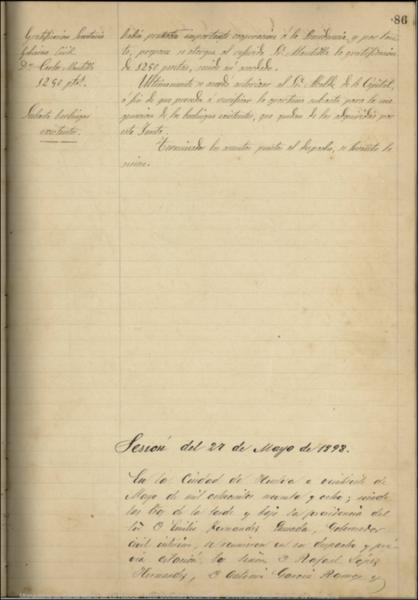 86
Gratificación Secretario
Gobierno Civil
Dn. Carlos Mantilla
1250 ptas.
Subasta
existentes.
había prestado importante cooperación á la Presidencia, y por tan-
to, propone se otorgue al referido Sr. Mantilla la gratificación
de 1250 pesetas, siendo así acordado.
Ultimamente se acordó autorizar al Sr. Alcalde de la Capital,
á fin de que proceda á verificar la oportuna subasta para la ena-
genacion de los existentes, que quedan de los adquiridos por
esta Junta.
Terminados los asuntos puestos al despacho, se levantó la
sesion.
Sesión del 27 de Mayo de 1898.
En la Ciudad de Huelva á veintisiete de
Mayo de mil ochocientos noventa y ocho; siendo
las de la tarde y bajo la presidencia del
Sor. D. Emilio Hernandez Gobernador
civil interino, se reunieron en su despacho y pré-
via citación los señores D. Rafael López
Hernandez, D. Antonio García Ramos y